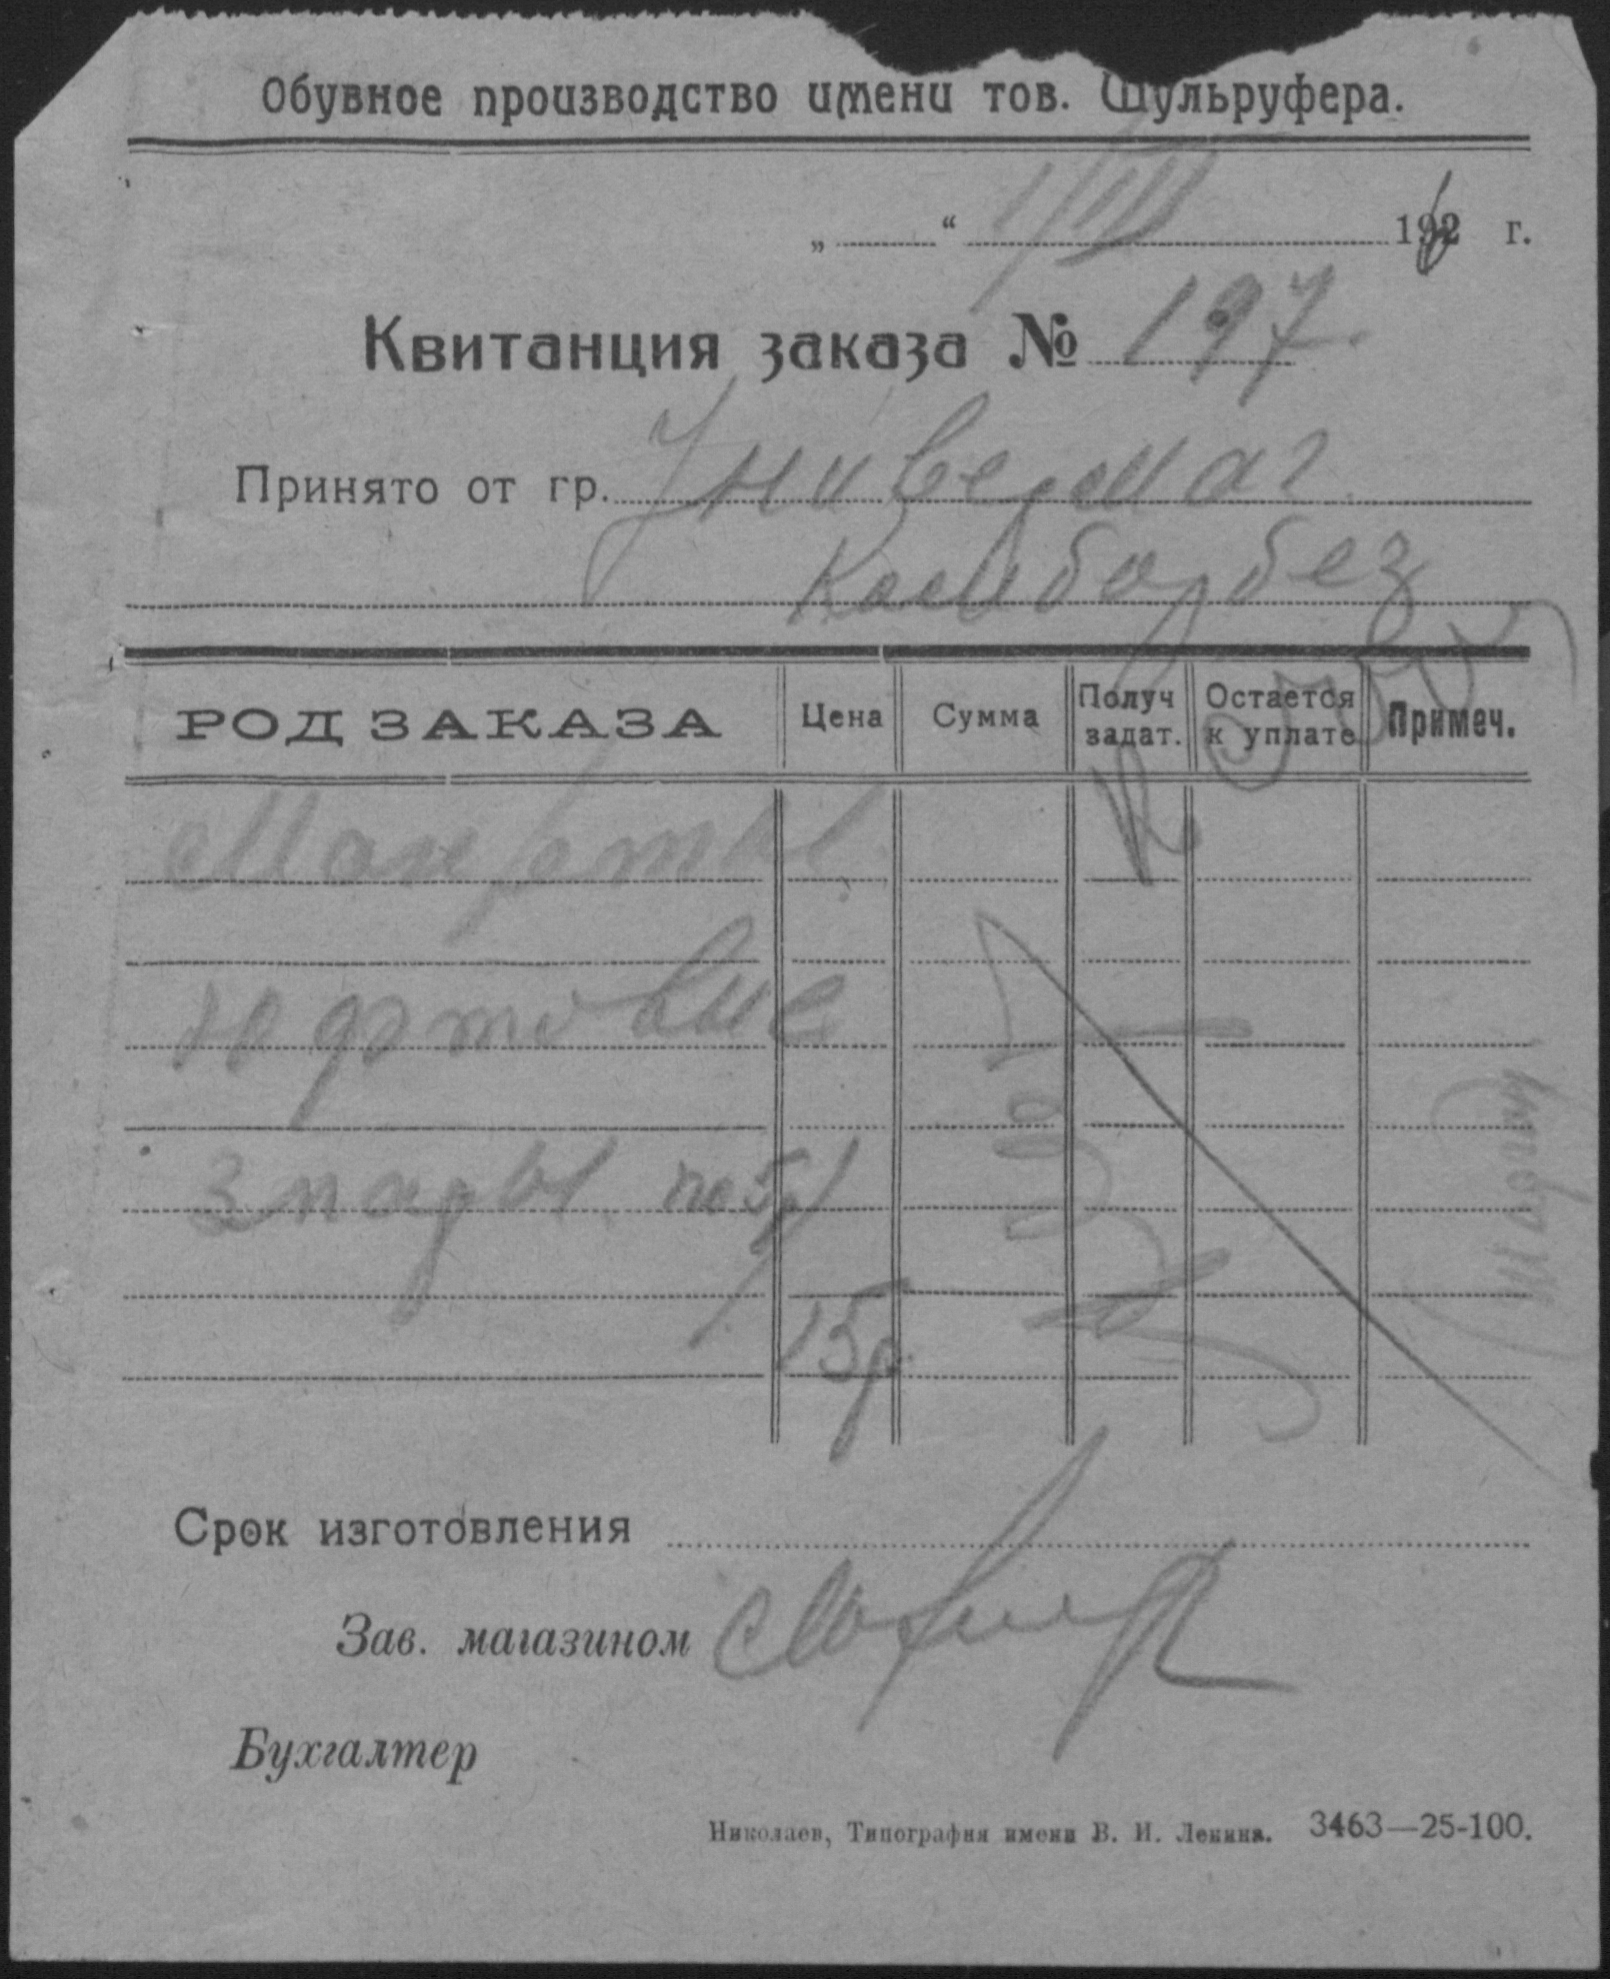 Обувное производство имени тов. Шульруфера.
„ “ 1/VIII 192 г.
Квитанция заказа № 197.
Принято от гр. Универмаг
Камборбез
РОД ЗАКАЗА Цена Сумма Получ задат. Остается к уплате Примеч.
юфтовые
3 пары по 5р
15р.
Срок изготовления
Зав. магазином
Бухгалтер
Николаев, Типография имени В. И. Ленина. 3463—25-100.